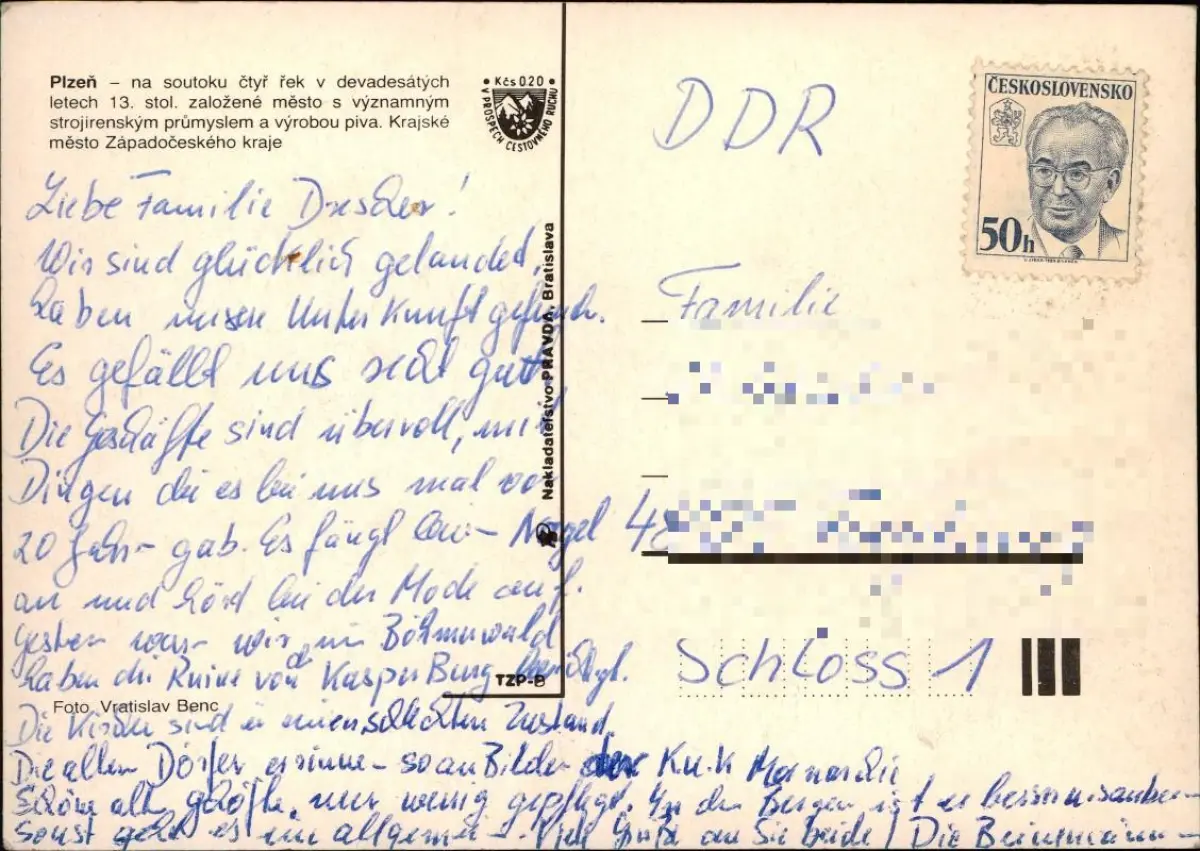 Plzeň – na soutoku čtyř řek v devadesátých
letech 13. stol. založené město s významným
strojírenským průmyslem a výrobou piva. Krajské
město Západočeského kraje
• Kčs 020 •
V PROSPĚCH CESTOVNÉHO RUCHU
Liebe Familie Drescher!
Wir sind glücklich gelandet,
haben unsere Unterkunft gefunden.
Es gefällt uns sehr gut
Die Geschäfte sind übervoll, mit
Dingen die es bei uns mal vor
20 Jahr gab. Es fängt beim Nagel
an und hört bei der Mode auf.
Gestern war wir im Böhmerwald
haben die Ruine von Kasper Burg besichtigt.
Die Kirchen sind in einen schlechten Zustand.
Die alten Dörfer erinner so an Bilder der K.u.K Monarchie
Schöne alte Gehöfte, nur wenig gepflegt. In den Bergen ist es besser u. sauber
Sonst geht es im allgemeinen. Viele Grüße an Sie beide! Die
Foto Vratislav Benc
Nakladateľstvo PRAVDA, Bratislava
TZP-8
DDR
ČESKOSLOVENSKO
50h
Familie
48
Schloss 1